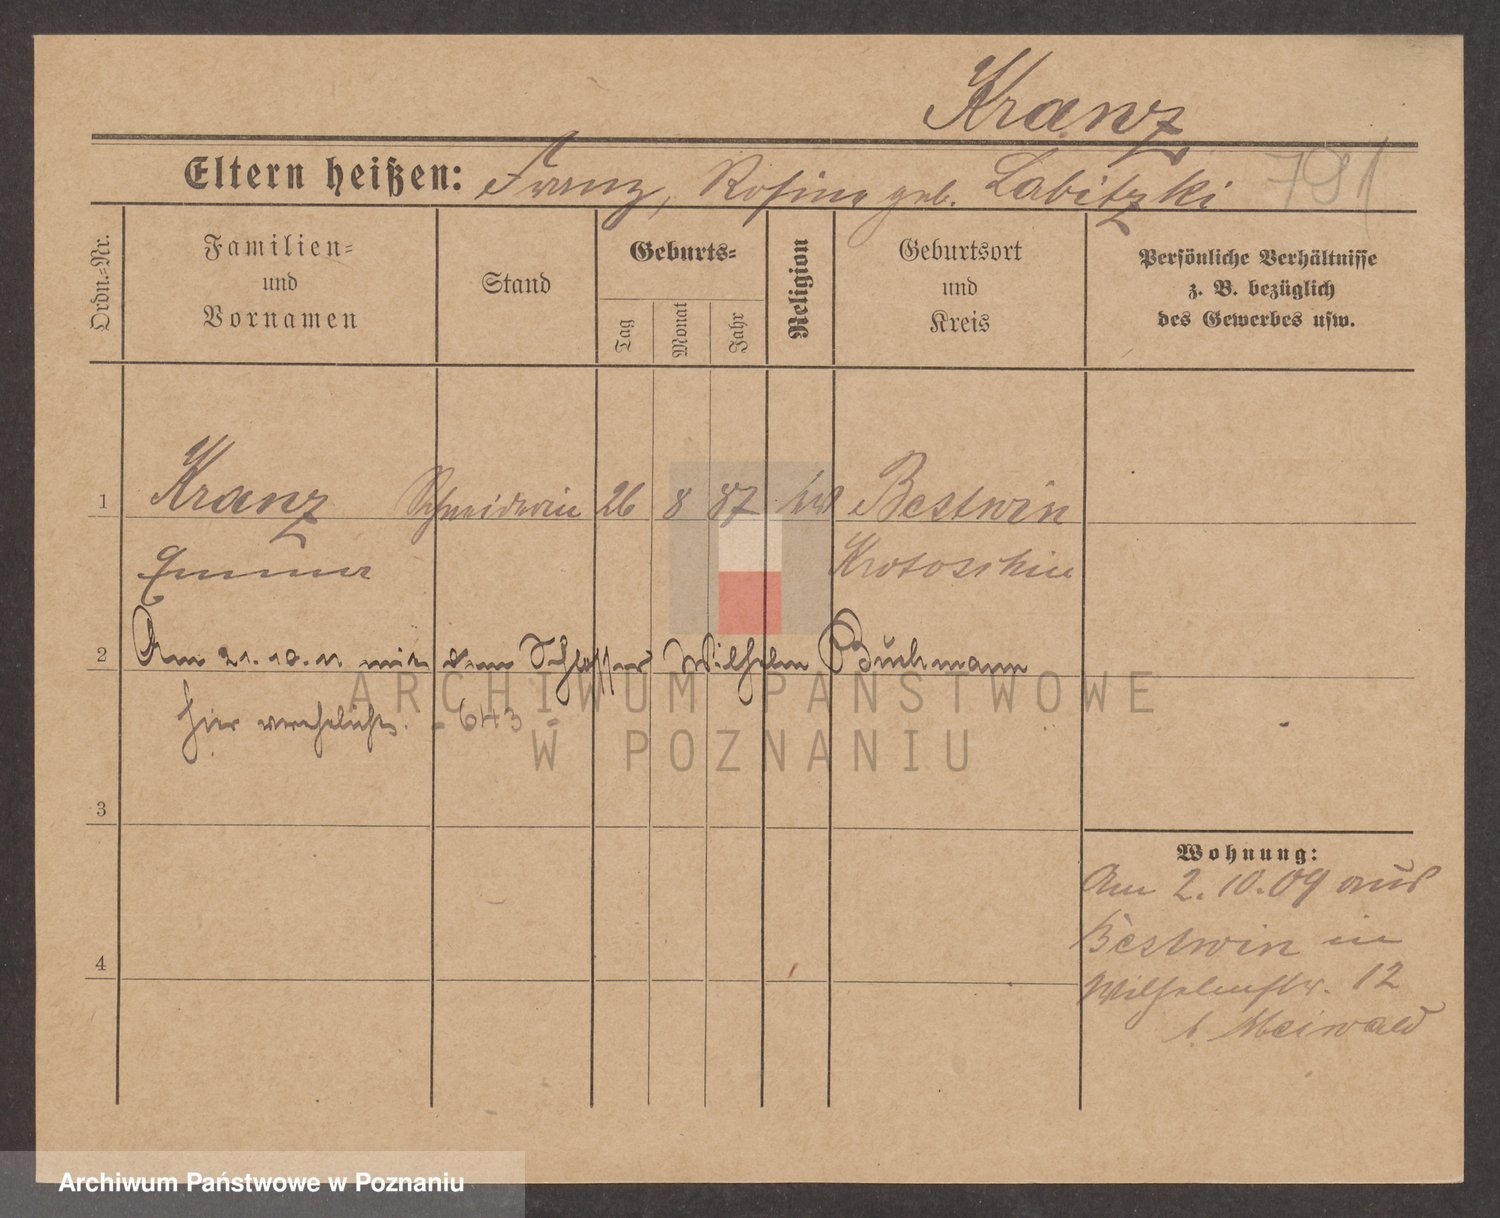 Kranz
Eltern heißen: Franz, Rosina geb. Labitzki 791
Ordn.=Nr.
Familien=
und
Vornamen
Stand
Geburts=
Tag
Monat
Jahr
Religion
Geburtsort
und
Kreis
Persönliche Verhältnisse
z. B. bezüglich
des Gewerbes usw.
1 Kranz Schneiderin 26 8 87 Bestwin
Emma Krotoschin
2 Am 21.10.11 mit dem Schlosser Wilhelm Buchmann
hier verehelicht. - 643 -
3
4
Wohnung:
Am 2.10.09 aus
Bestwin in
Wilhelmstr. 12
b. Meiwald
ARCHIWUM PAŃSTWOWE
W POZNANIU
Archiwum Państwowe w Poznaniu